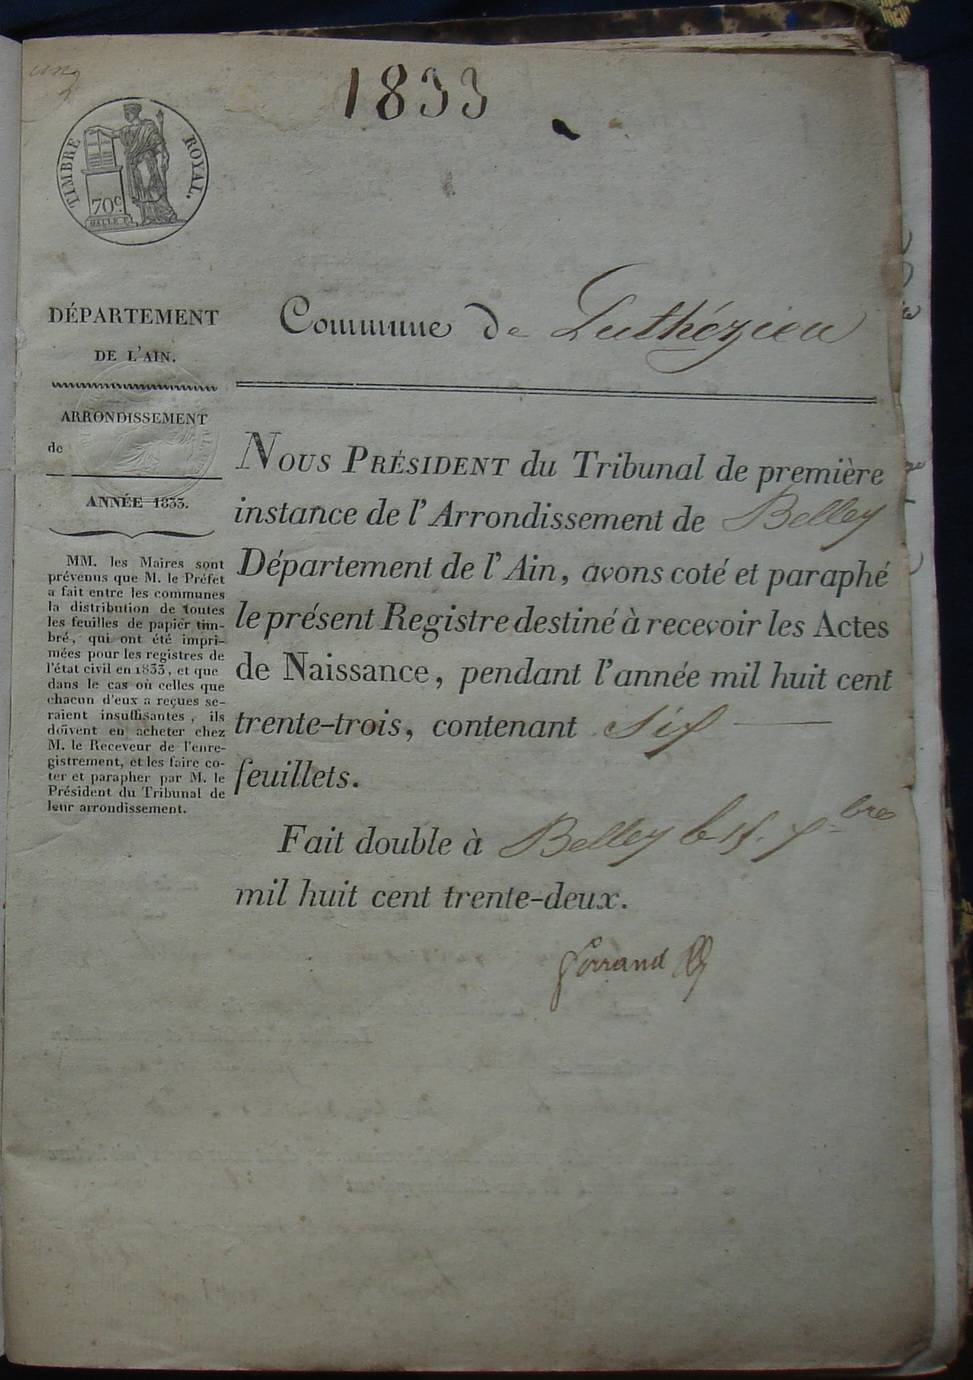 1833
TIMBRE ROYAL.
70c
DÉPARTEMENT
DE L'AIN.
ARRONDISSEMENT
de
ANNÉE 1833.
MM. les Maires sont
prévenus que M. le Préfet
a fait entre les communes
la distribution de toutes
les feuilles de papier tim-
bré, qui ont été impri-
mées pour les registres de
l'état civil en 1833, et que
dans le cas où celles que
chacun d'eux a reçues se-
raient insuffisantes, ils
doivent en acheter chez
M. le Receveur de l'enre-
gistrement, et les faire co-
ter et parapher par M. le
Président du Tribunal de
leur arrondissement.
Commune de Luthézieu
NOUS PRÉSIDENT du Tribunal de première
instance de l'Arrondissement de Belley
Département de l'Ain, avons coté et paraphé
le présent Registre destiné à recevoir les Actes
de Naissance, pendant l'année mil huit cent
trente-trois, contenant six
feuillets.
Fait double à Belley le 15. bres
mil huit cent trente-deux.